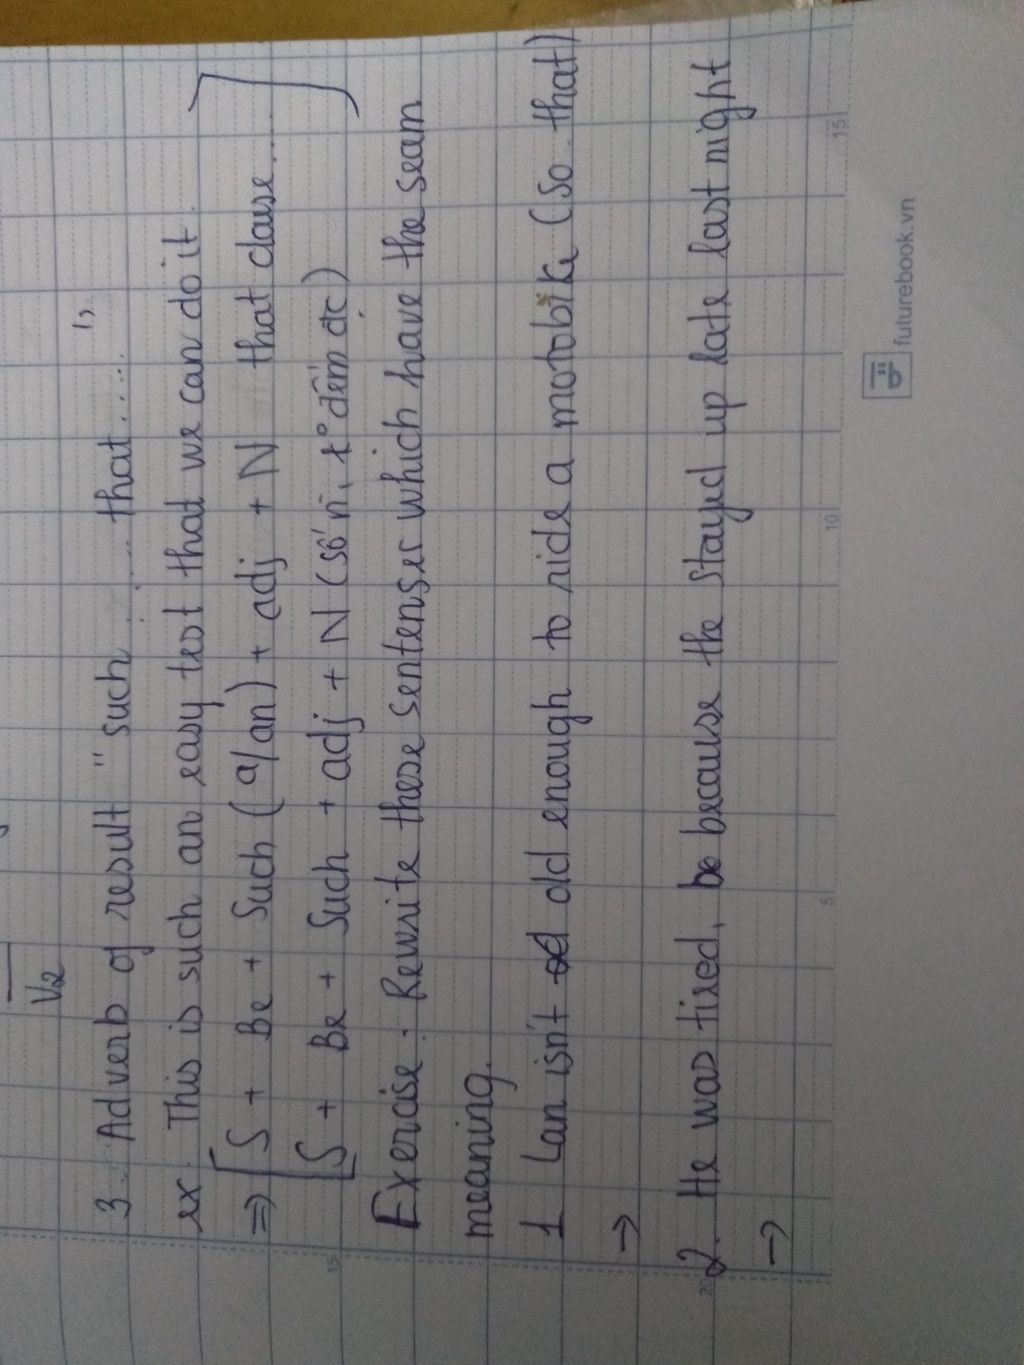 V2
3. Adverb of result "such ..... that ....",
ex. This is such an easy test that we can do it.
=> S + Be + Such (a/an) + adj + N that clause....
S + Be + Such + adj + N (số nì, to đếm đc)
Exercise. Rewrite these sentenser which have the seam
meaning.
1 Lan isn't old enough to ride a motobike (so that)
→
2. He was tired, because the stayed up late last night
→
15
20
5
10
15
futurebook.vn